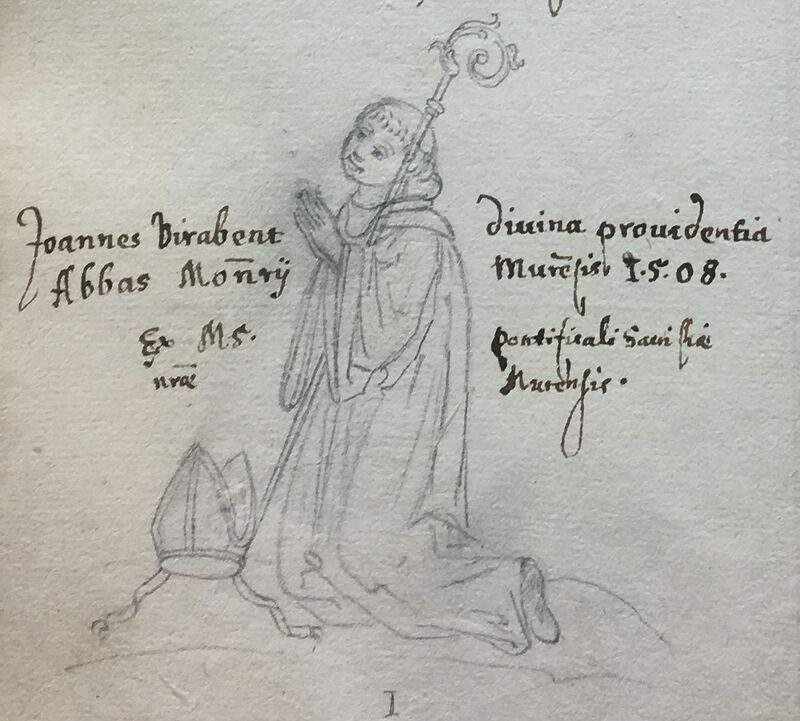 Joannes Birabent divina providentia
Abbas Moñrij Mureñsis 1.5.08.
Ex MS. pontificali
nrāe Murensis.
I